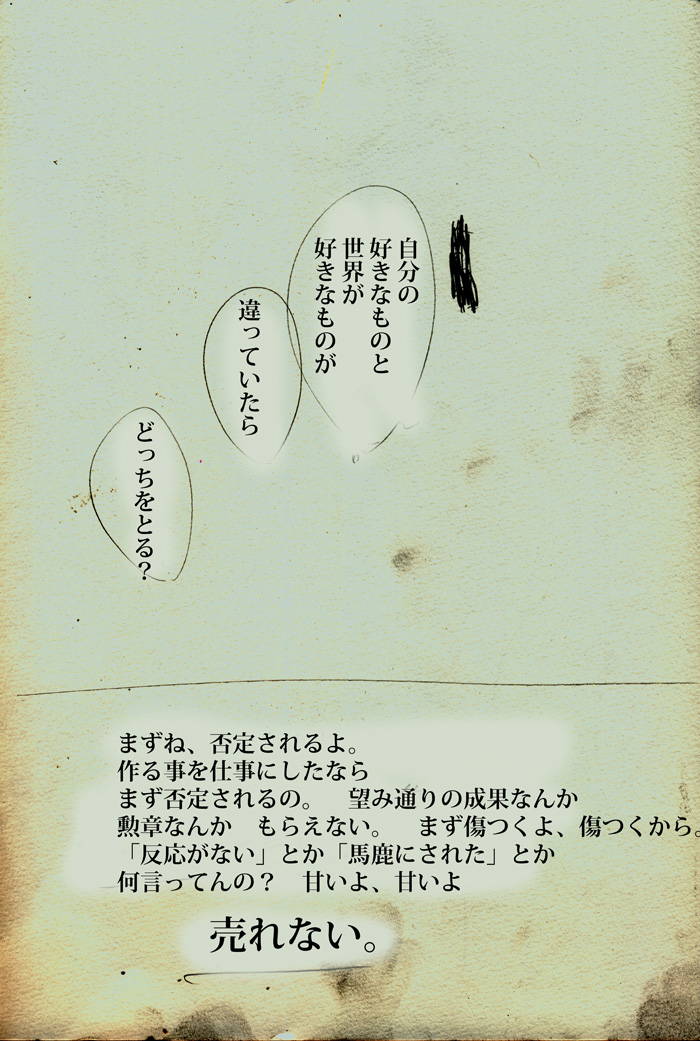 自分の
好きなものと
世界が
好きなものが
違っていたら
どっちをとる?
まずね、否定されるよ。
作る事を仕事にしたなら
まず否定されるの。　望み通りの成果なんか
勲章なんか　もらえない。　まず傷つくよ、傷つくから。
「反応がない」とか「馬鹿にされた」とか
何言ってんの？　甘いよ、甘いよ
売れない。